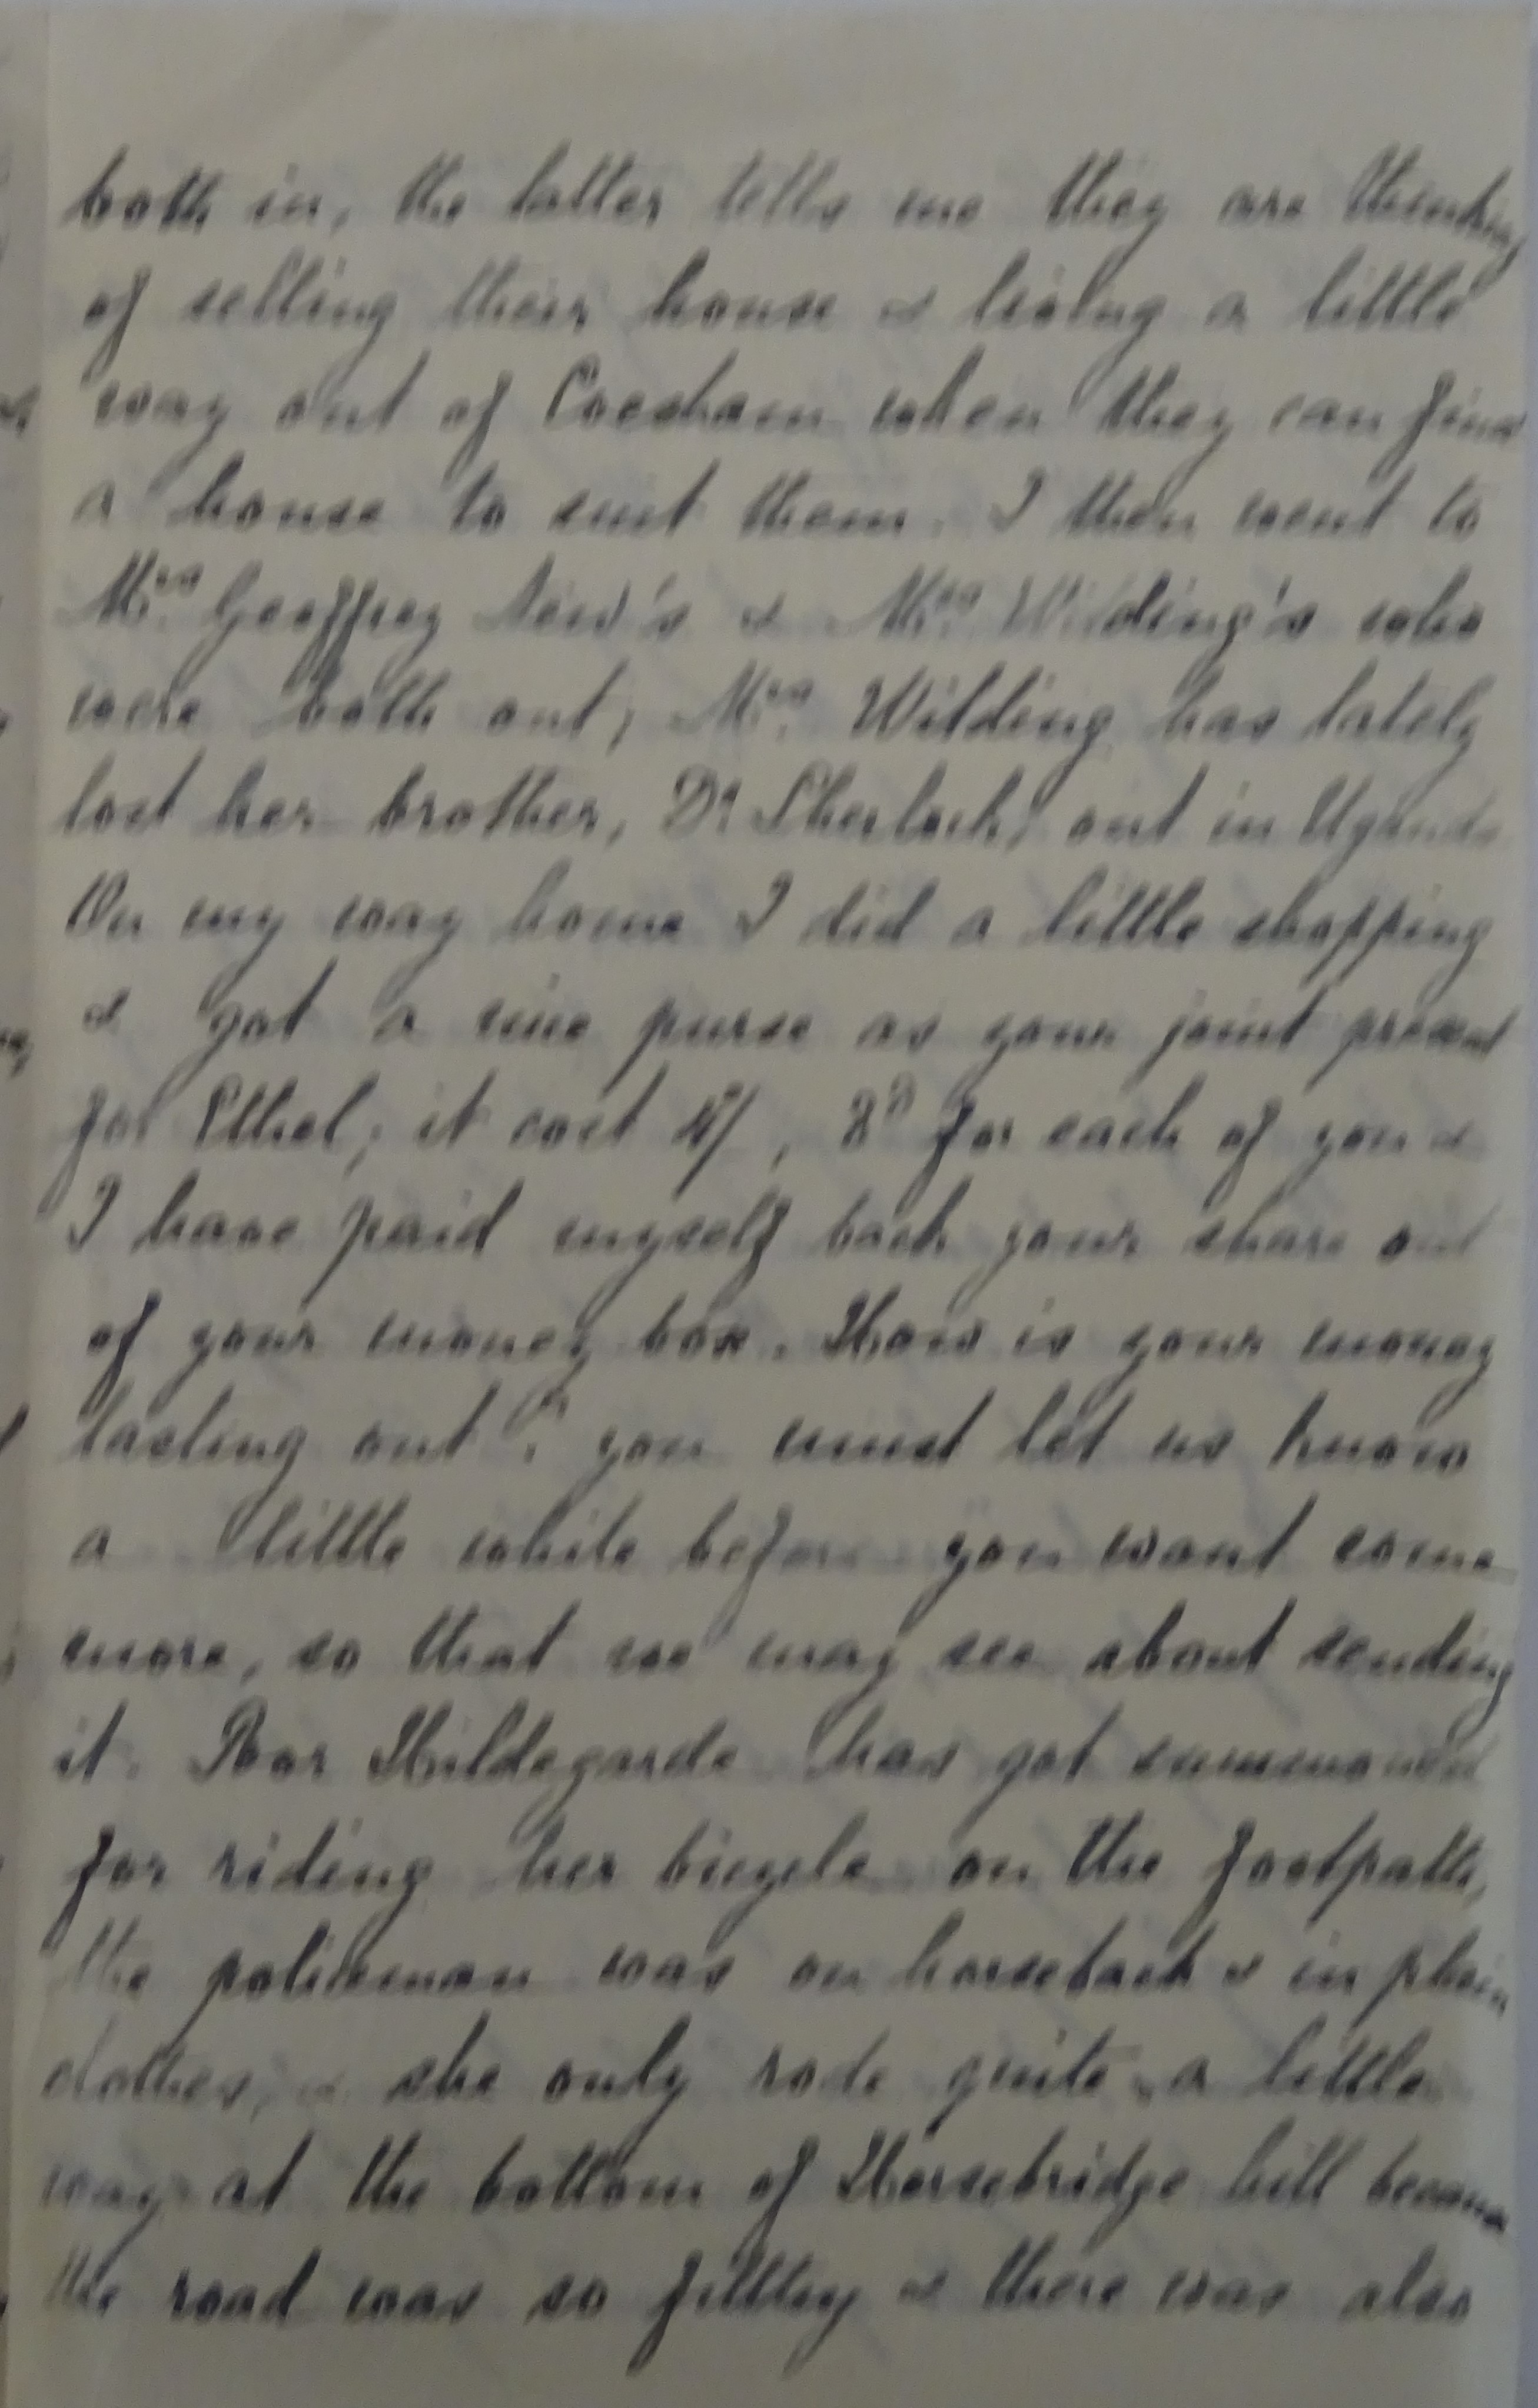 both in, the latter tells me they are thinking
of selling their house & living a little
way out of Evesham when they can find
a house to suit them. I then went to
Mrs. Geoffrey New's & Mrs. Wilding's who
were both out; Mrs. Wilding has lately
lost her brother, Dr. Sherlock, out in Uganda
On my way home I did a little shopping
& got a nice purse as your joint present
for Ethel; it cost 4/, 8d for each of you &
I have paid myself back your share out
of your money box. How is your money
lasting out? you must let us know
a little while before you want some
more, so that we may see about sending
it. Poor Hildegarde has got summoned
for riding her bicycle on the footpath,
the policeman was on horseback & in plain
clothes, & she only rode quite a little
way at the bottom of Horsebridge hill because
the road was so filthy & there was also